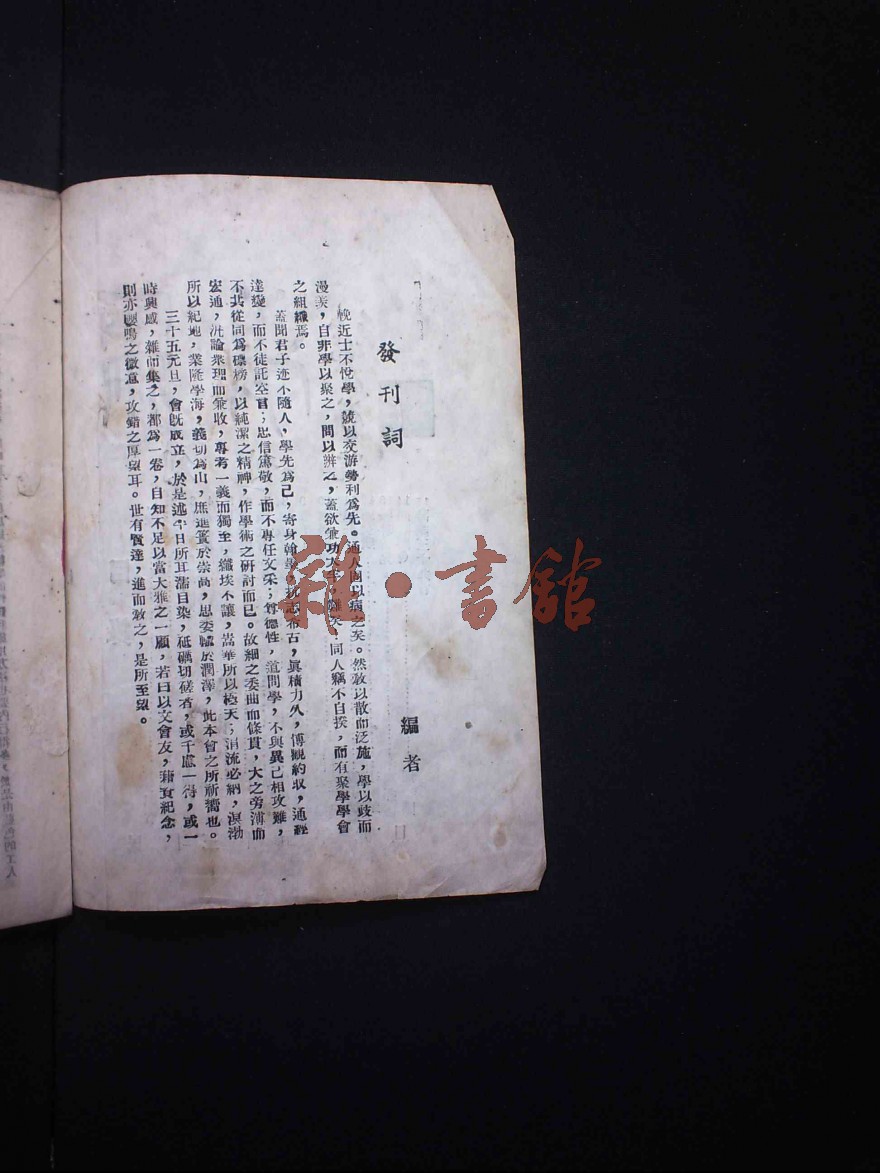 發刊詞
編者
輓近士不悅學，競以交游勢利為先。通人固以病之矣。然敎以散而泛施，學以歧而
漫羨，自非學以聚之，問以辨之，蓋欲兼功大
同人竊不自揆，而有聚學學會
之組織焉。
蓋聞君子迹不隨人，學先為己，寄身翰墨，抗志希古，眞積力久，博觀約収，通經
達變，而不徒託空言；忠信篤敬，而不專任文采；尊德性，道問學，不與異己相攻難，
不共從同為標榜，以純潔之精神，作學術之硏討而已。故細之委曲而條貫，大之旁溥而
宏通，汎論衆理而兼收，專考一義而獨至，纖埃不讓，嵩華所以極天；涓流必納，溟渤
所以紀地，業隆學海，義切為山，庶進簣於崇高，思委輸於潤澤，此本會之所祈嚮也。
三十五元旦，會旣成立，於是述平日所耳濡目染，砥礪切磋者，或千慮一得，或一
時興感，雜而集之，都為一卷，自知不足以當大雅之一顧，若曰以文會友，藉資紀念，
則亦嚶鳴之微意，攻錯之厚望耳。世有賢達，進而敎之，是所至望。
雜·書館